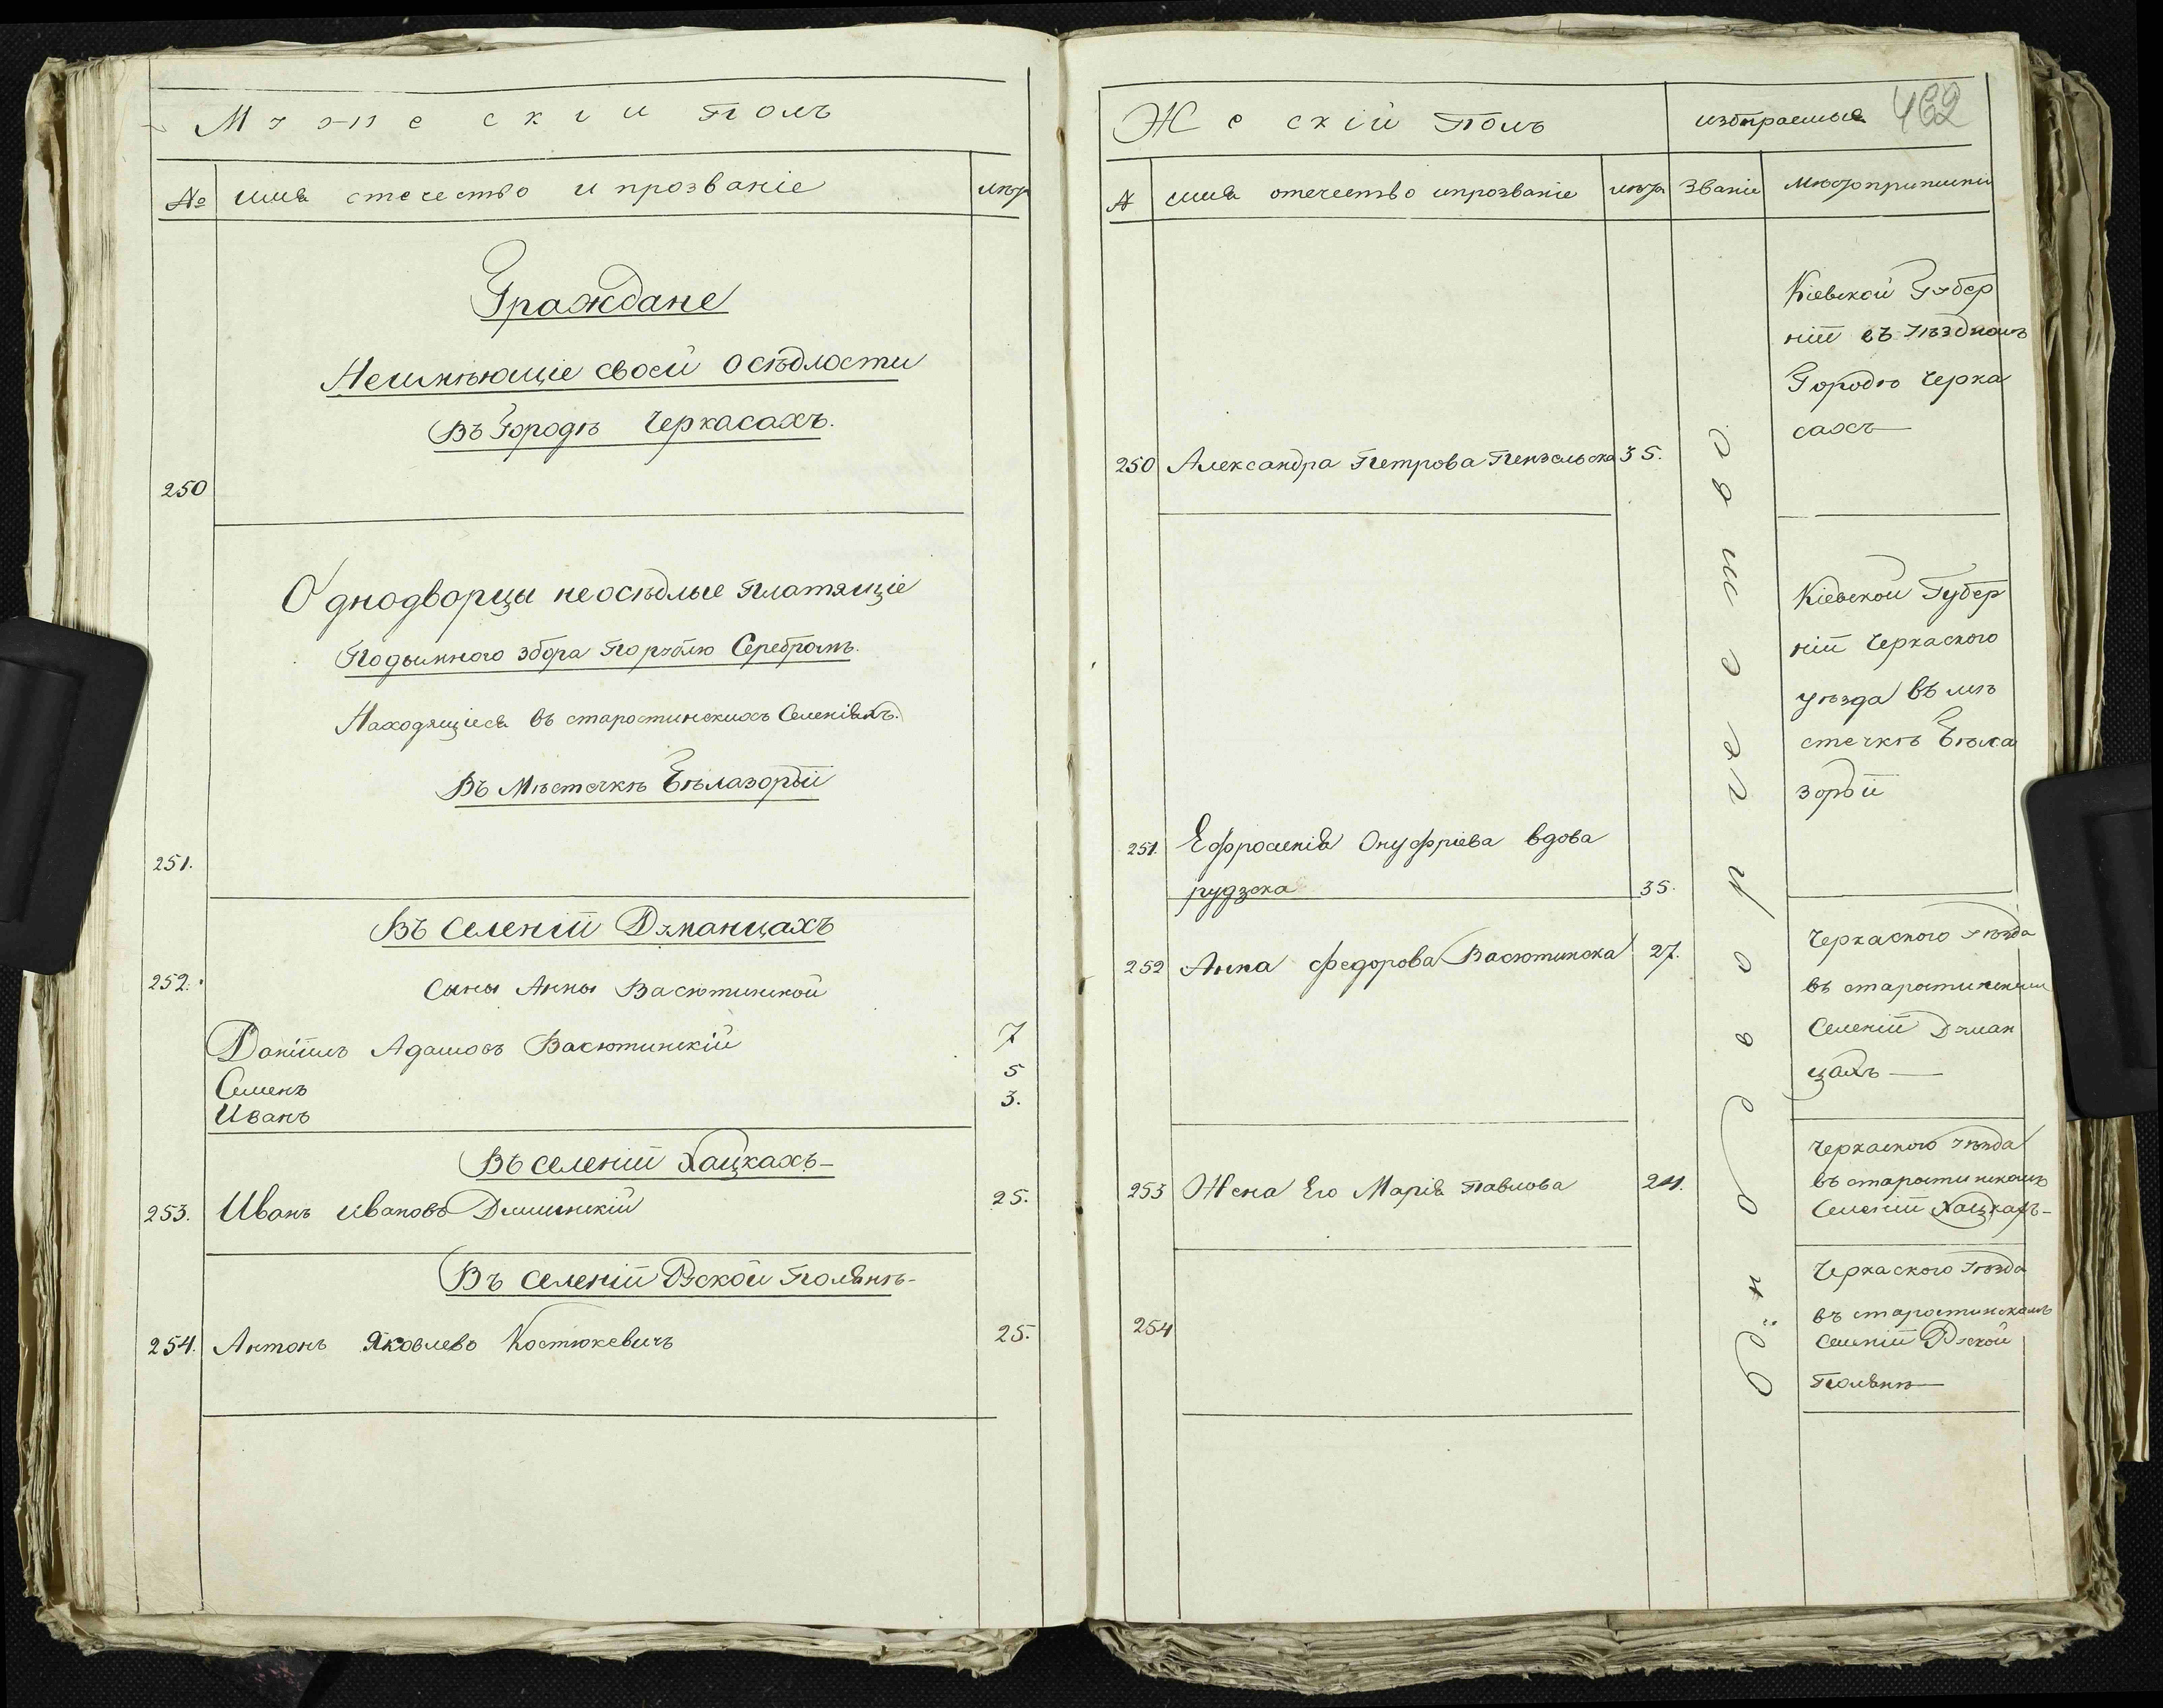 Мужескій полъ
№ имя отечество и прозваніе лѣта
Граждане
Неимѣющіе своей осѣдлости
Въ Городѣ Черкасахъ.
250
Однодворцы неосѣдлые платящіе
Подымного збора по рублю Серебромъ.
Находящіеся въ старостинскихъ Селеніяхъ.
Въ Мѣстечкѣ Бѣлазорьи
251.
Въ Селеніи Думанцахъ
252. Сыны Анны Васютинской
Даніилъ Адамовъ Васютинскій 7
Семенъ 5
Иванъ 3.
Въ селеніи Хацкахъ-
253. Иванъ Ивановъ 25.
Въ Селеніи Руской Полянѣ-
254. Антонъ Яковлевъ Костюкевичъ 25.
Же скій полъ избираемыя 462
№ имя отечество ипрозваніе лѣта Званіе Мѣсто приписки
Кіевской Губер
ніи въ уѣздномъ
Городѣ Черка
сахъ
250 Александра Петрова 35.
Кіевской Губер
ніи Черкаского
уѣзда въ мѣ
стечкѣ Бѣла
зорьи
251. Ефросенія Онуфріева вдова
рудзска 35.
252 Анна Федорова Васютинска 27.
Черкаского уѣзда
въ старостинскомъ
Селеніи Думан
цахъ
253 Жена Его Марія Павлова 24.
Черкаского уѣзда
въ старостинскомъ
Селеніи Хацкахъ-
254
Черкаского уѣзда
въ старостинскомъ
Селеніи Руской
Полянѣ
однодворчество